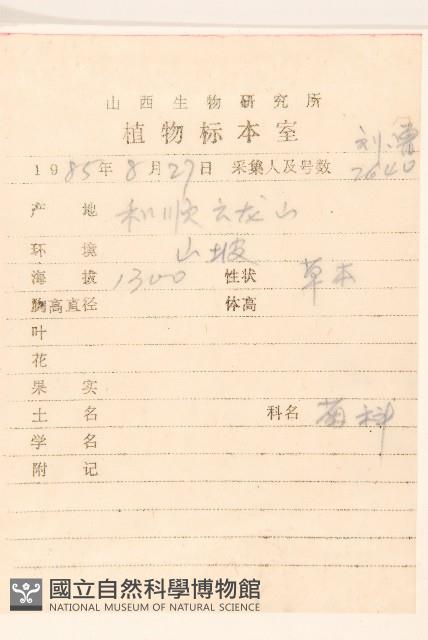 山西生物研究所
植物标本室
1985年8月27日 采集人及号数 刘 2640
产地 和顺云龙山
环境 山坡
海拔 1300 性状 草本
胸高直径 体高
叶
花
果实
土名 科名 菊科
学名
附记
國立自然科學博物館
NATIONAL MUSEUM OF NATURAL SCIENCE